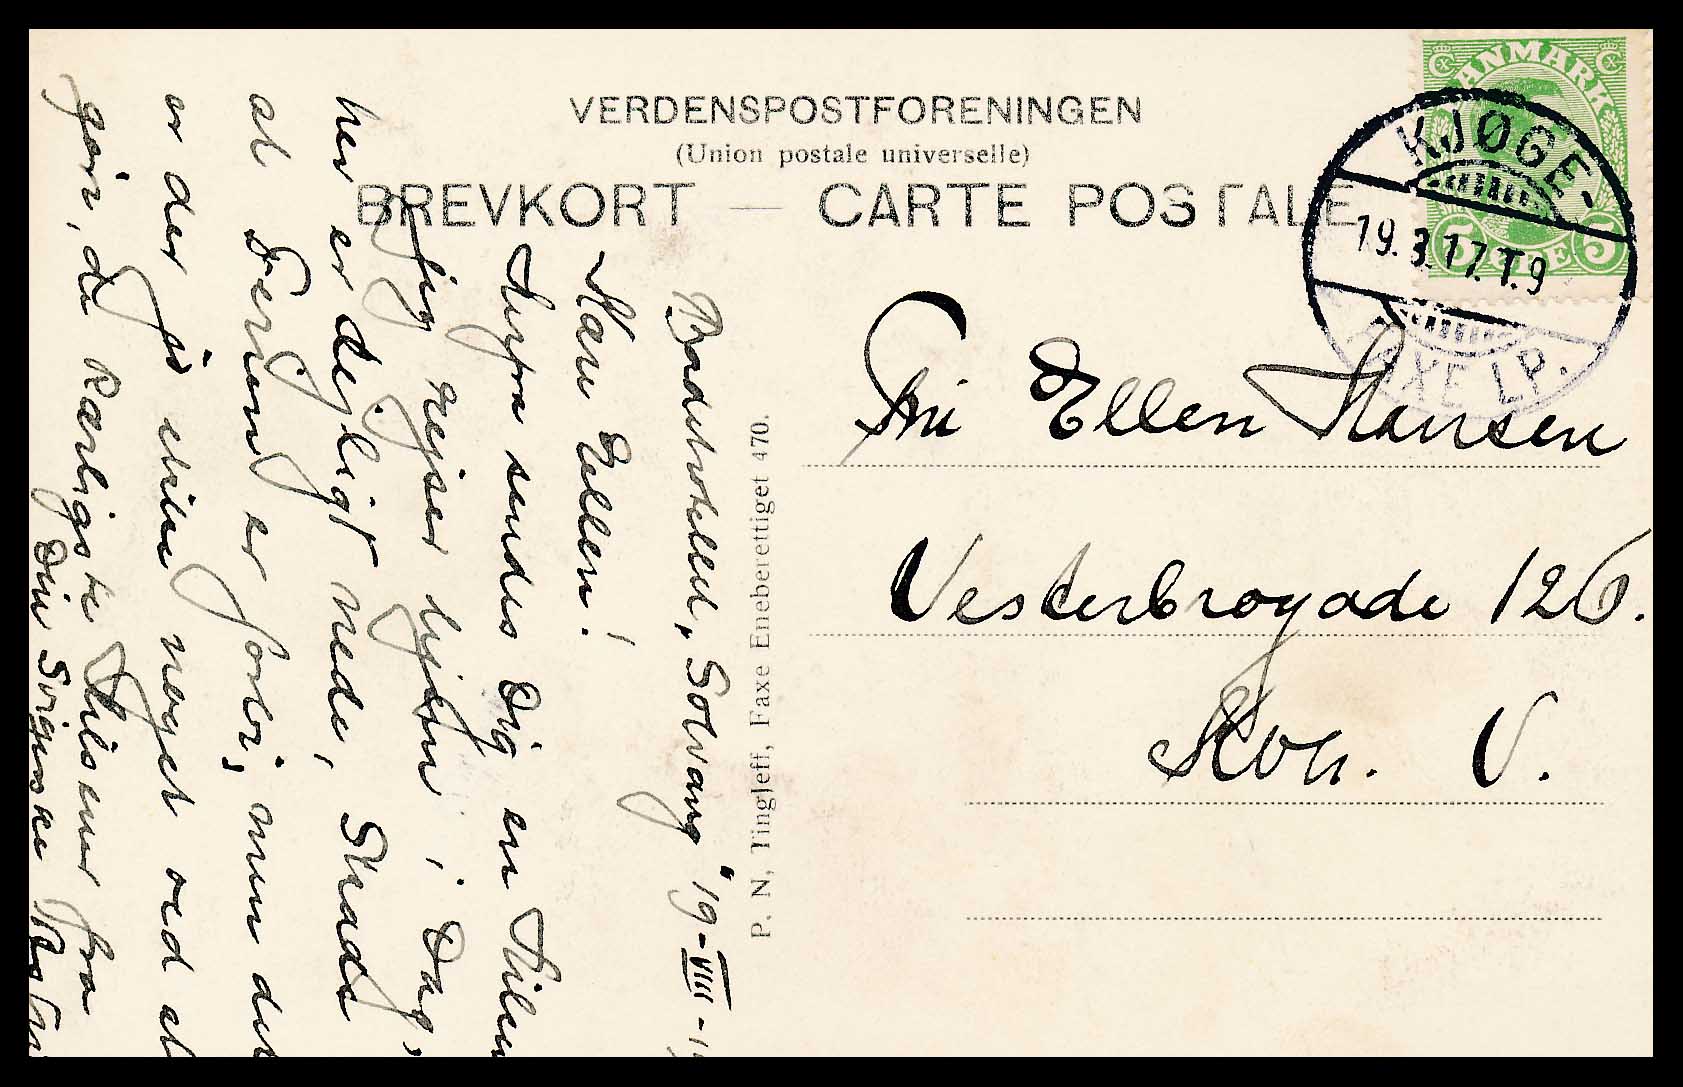 VERDENSPOSTFORENINGEN
(Union postale universelle)
BREVKORT — CARTE POSTALE
DANMARK
5 ØRE 5
KJØGE-
19.8.17.T.9
FAXE LP.
Frk. Ellen Hansen
Vesterbrogade 126.
Kbh. V.
P. N. Tingleff, Faxe Eneberettiget 470.
Badehotellet „Solvang" 19-VIII-1
Kære Ellen!
Herfra sendes Dig en Hilsen
Jeg rejser hjem i Dag,
her er dejligt nede, Skade
at Ferien er forbi, men det
er der jo ikke noget ved at
gøre, de kærligste Hilsener fra
Din Svigerske